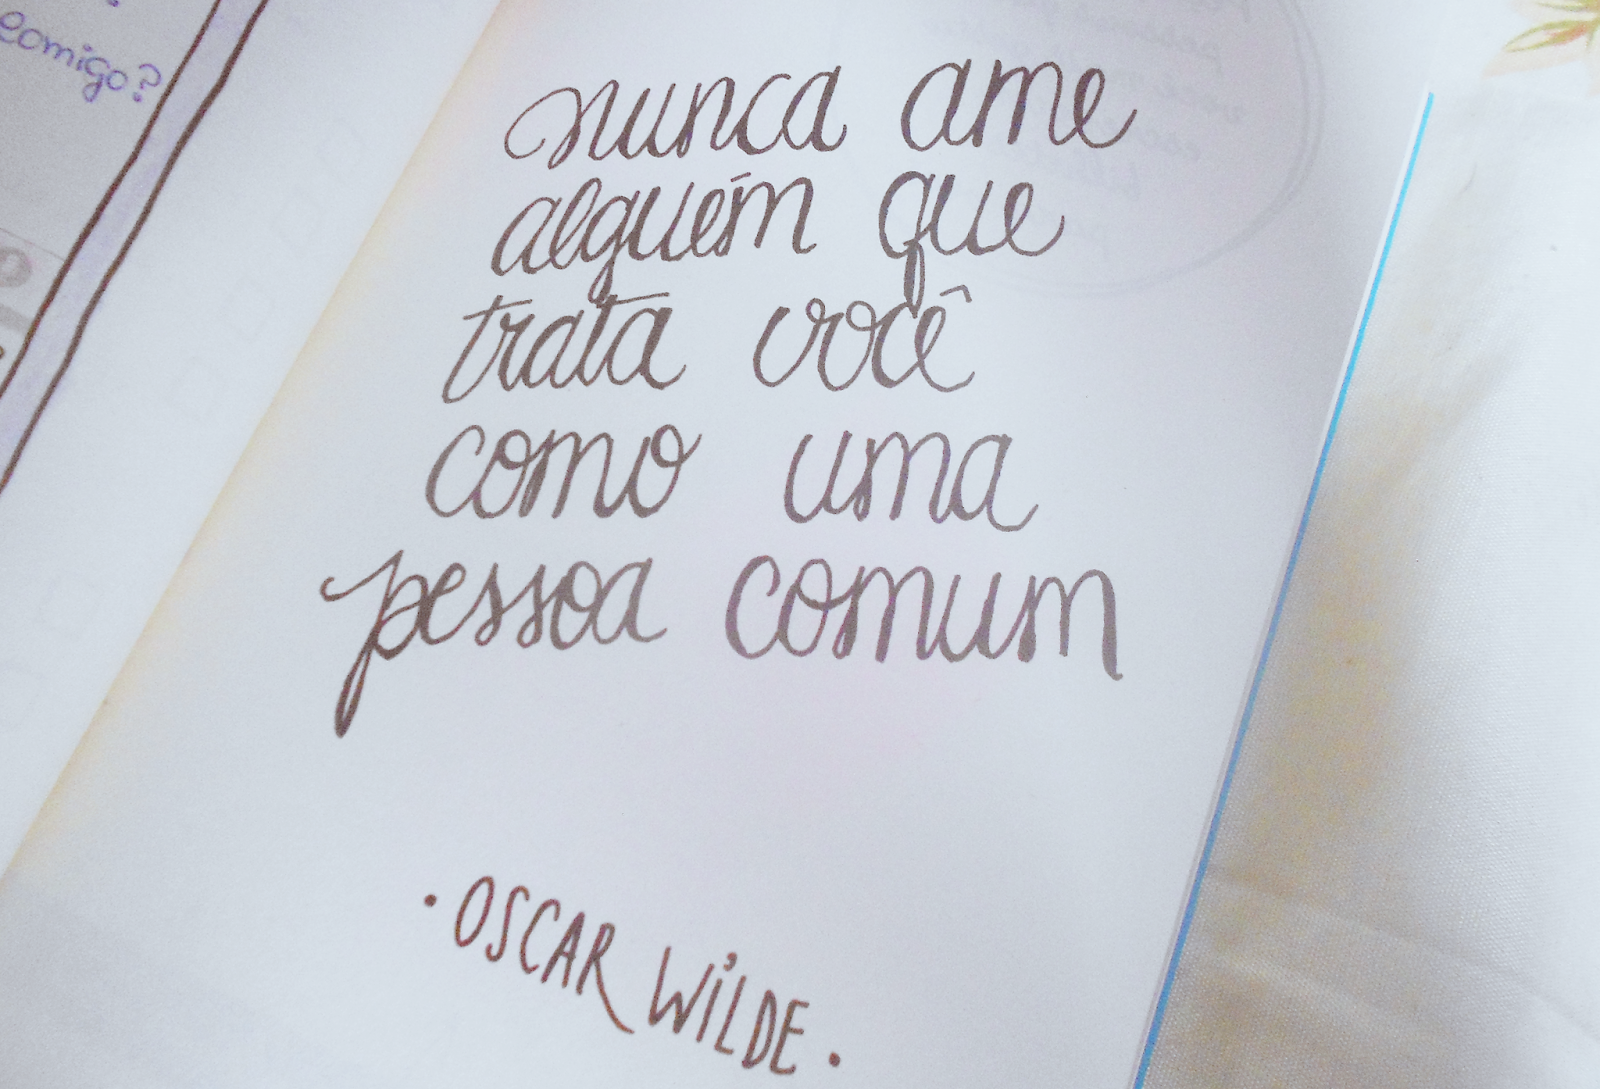 comigo?
nunca ame
alguém que
trata você
como uma
pessoa comum
· OSCAR WILDE ·